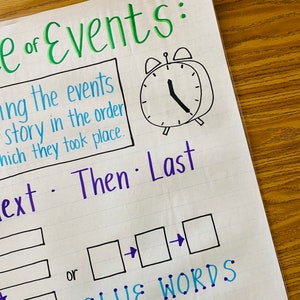 of Events:
ing the events
story in the order
which they took place.
Next · Then · Last
or
CLUE WORDS